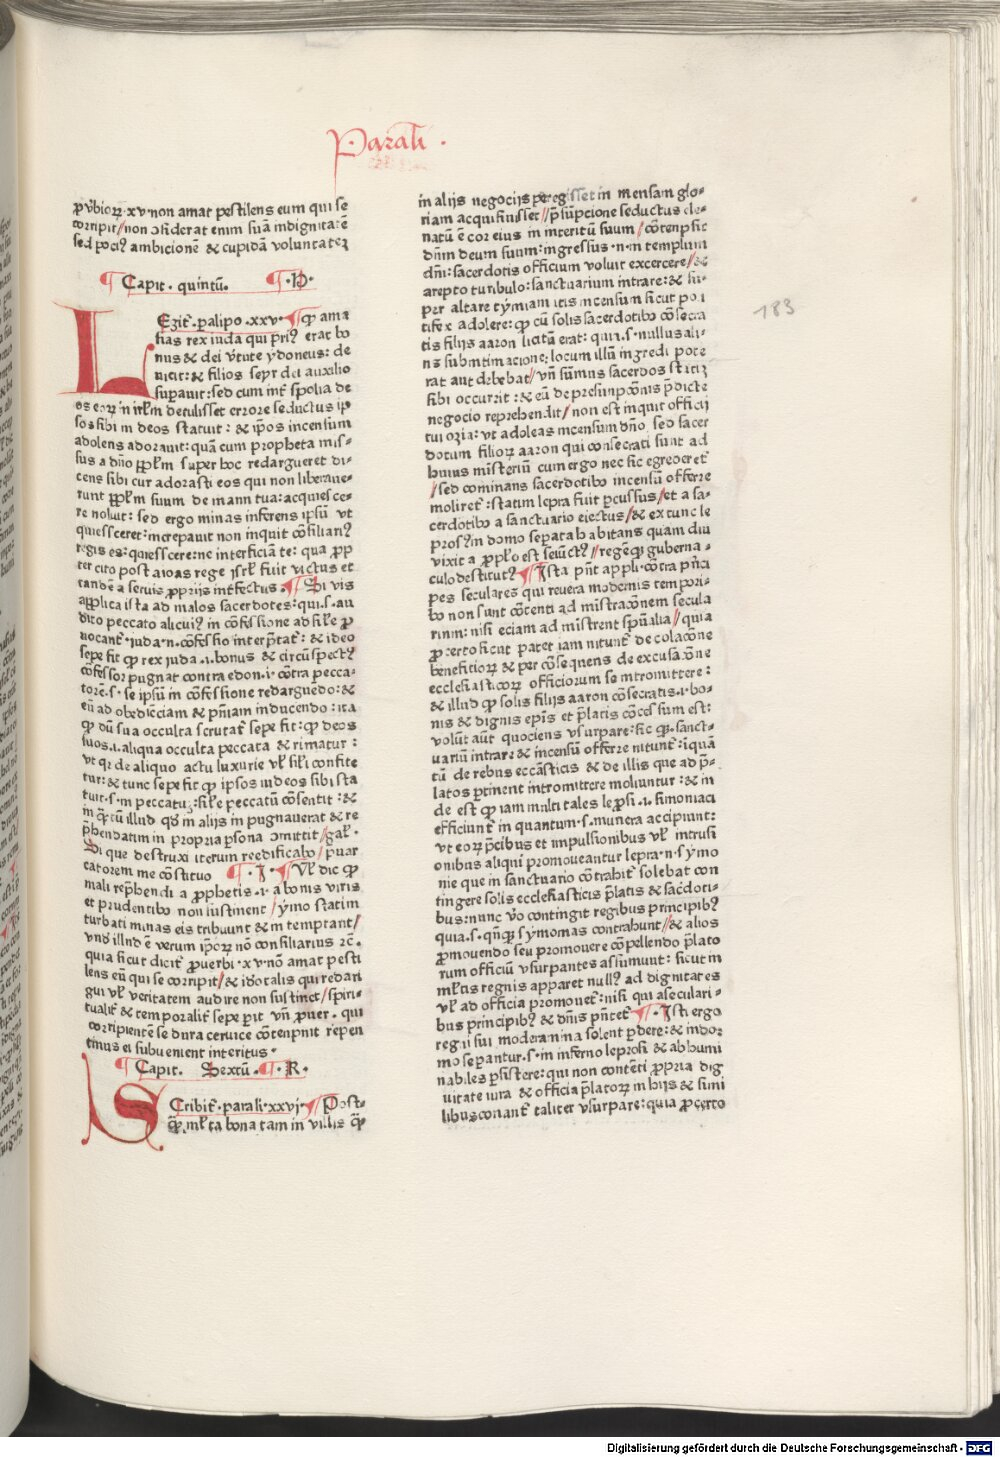 Parali ·
ꝓv̄bioꝝ·xv·non amat pestilens eum qui se
corripit/non ɔsiderat enim suā indignitatē
sed poci⁹ ambicionē & cupidā voluntateꝫ
¶ Capit · quintū. ¶ ·P·
LEgit̄·palipo·xxv·¶ꝙ ama
sias rex iuda qui pri⁹ erat bo
nus & dei v̄tute ydoneus: de
uicit: & filios seyr dei auxilio
suꝑauit: sed cum int̄ spolia de
os eoꝝ in irl̄m detulisset errore seductus ip
sos sibi in deos statuit: & ip̄os incensum
adolens adorauit: quā cum propheta mis-
sus a dn̄o ppl̄m super hoc redargueret di-
cens sibi cur adorasti eos qui non liberaue-
runt ppl̄m suum de manu tua: acquiesce-
re noluit: sed ergo minas inferens ip̄sū vt
quiesceret: increpauit non inquit cōsiliari⁹
regis es: quiesce: ne interficiā te: qua ꝓp
ter cito post a ioas rege isrl̄ fuit victus et
tandē a seruis ꝓprijs int̄fectus. ¶ Si vis
applica ista ad malos sacerdotes: qui·s·au
dito peccato alicui⁹ in cōfessione ad sil̄e ꝓ
uocant̄·iuda·n·cōfessio interp̄tat̄: & ideo
sepe fit ꝙ rex iuda·i·bonus & circūspect⁹
cōfessor pugnat contra edon·i·cōtra pecca-
torē·s·se ipsū in cōfessione redarguēdo: &
eū ad obediēciam & pn̄iam inducendo: ita
ꝙ dū sua occulta scrutat̄ sepe fit: ꝙ deos
suos·i·aliqua occulta peccata & rimatur:
vt qꝛ de aliquo actu luxurie vl̄ sil̄i confite
tur: & tunc sepe fit ꝙ ipsos in deos sibi sta
tuit·s·in peccatū: sil̄e peccatū cōsentit: &
in ꝙ cū illud qd̄ in alijs inpugnauerat & re
p̄hendat in propria ꝑsona ɔmittit/gal̄·
Si que destruxi iterum reedificabo/p̄uar
catorem me cōstituo ¶ ·I· ¶ Vl̄ dic ꝙ
mali rep̄hendi a ꝓphetis·i·a bonis viris
et prudentibꝰ non sustinent/ymo statim
turbati minas eis tribuunt & intemptant/
vnd̄ illud ē verum ip̄oꝝ nō consiliarius ⁊c̄.
quia sicut dicit̄ ꝓuerbi·xv·nō amat pesti
lens eū qui se corripit/& idō talis qui redari
gui vl̄ veritatem audire non sustinet/spiri-
tualit̄ & temporalit̄ sepe ꝑit vn̄ ꝓuer. qui
corripientē se dura ceruice cōtenpnit repen
tinus ei subuenient interitus ·
¶ Capit. Sextū. ¶ · R·
SCribit̄·parali·xxvi·¶Post-
ꝙ̄ ml̄ta bona tam in villis ꝙ̄
in alijs negocijs peregisset in mensam glo-
riam acquisiuisset//p̄sūpcione seductus ele-
natū ē cor eius in interitū suum/cōtenpsit
dn̄m deum suum: ingressus·n·in templum
dn̄i: sacerdotis officium voluit excercere/&
arepto turibulo: sanctuarium intrare: & su-
per altare tymiamitis incensum sicut pon
tifex adolere: ꝙ cū solis sacerdotibꝰ cōsecra
tis filijs aaron licitū erat: qui·s·nullus ali-
us sub intimacione: locum illū ingredi pote
rat aut debebat/vn̄ sūmus sacerdos statiꝫ
sibi occurrit: & eū de presumpcōnis p̄dicte
negocio reprehendit/non est inquit officij
tui ozia: vt adoleas incensum dn̄o sed sacer
dotum filioꝝ aaron qui consecrati sunt ad
huius mīsteriū cum ergo nec sic egrederet̄
/sed cominans sacerdotibꝰ incensū offerre
moliret̄: statim lepra fuit ꝑcussus/et a sa-
cerdotibꝰ a sanctuario eiectus/& ex tunc le
pros⁹ in domo sepata habitans quam diu
vixit a ꝓpl̄o est seiūct⁹//regēꝗ guberna-
culo destitut⁹ ¶ Ista pn̄t appli·cōtra p̄nci
pes seculares qui reuera modernis tempori-
bꝰ non sunt cōtenti ad mīstracōnem secula
rium: nisi eciam ad mīstrent spūalia//quia
ꝓcerto sicut patet iam nitunt̄ de colacōne
benefitioꝝ & per cōsequens de excusacōne
ecclesiasticoꝝ officiorum se intromittere:
& illud ꝙ solis filijs aaron cōsecratis·i·bo-
nis & dignis ep̄is et p̄latis cōcessum est:
volūt aūt quociens vsurpare: sic ꝙ·sanct-
uariū intrare & incensū offerre nitunt̄: iquā
tū de rebus eccāsticis & de illis que ad p̄-
latos ꝑtinent intromittere moliuntur: & in
de est ꝙ iam multi tales lep̄si·i·simoniaci
efficiunt̄ in quantum·s·munera accipiunt:
vt eoꝝ p̄cibus et impulsionibus vl̄ intrusi
onibus aliqui promoueantur lepra·n·symo
nie que in sanctuario cōtrahit̄ solebat con
tingere solis ecclesiasticis p̄latis & sac̄doti-
bus: nunc v̄o contingit regibus principib⁹
quia·s·qn̄ꝗ symonias contrahunt//& alios
ꝓmouendo seu promouere cōpellendo p̄lato
rum officiū vsurpantes assumunt: sicut in
ml̄tis regnis apparet null⁹ ad dignitates
vl̄ ad officia promouet̄: nisi qui a seculari-
bus principib⁹ & dn̄is pn̄tet̄ ¶ · Isti ergo
regii sui moderamina solent ꝑdere: & in dor
mo sepantur·s·in inferno leprosi & abhomi
nabiles ꝑsistere: qui non contēti ꝓpria dig
nitate iura & officia p̄latoꝝ in hijs & simi
libus conant̄ taliter vsurpare: quia ꝓcerto
183
Digitalisierung gefördert durch die Deutsche Forschungsgemeinschaft - DFG